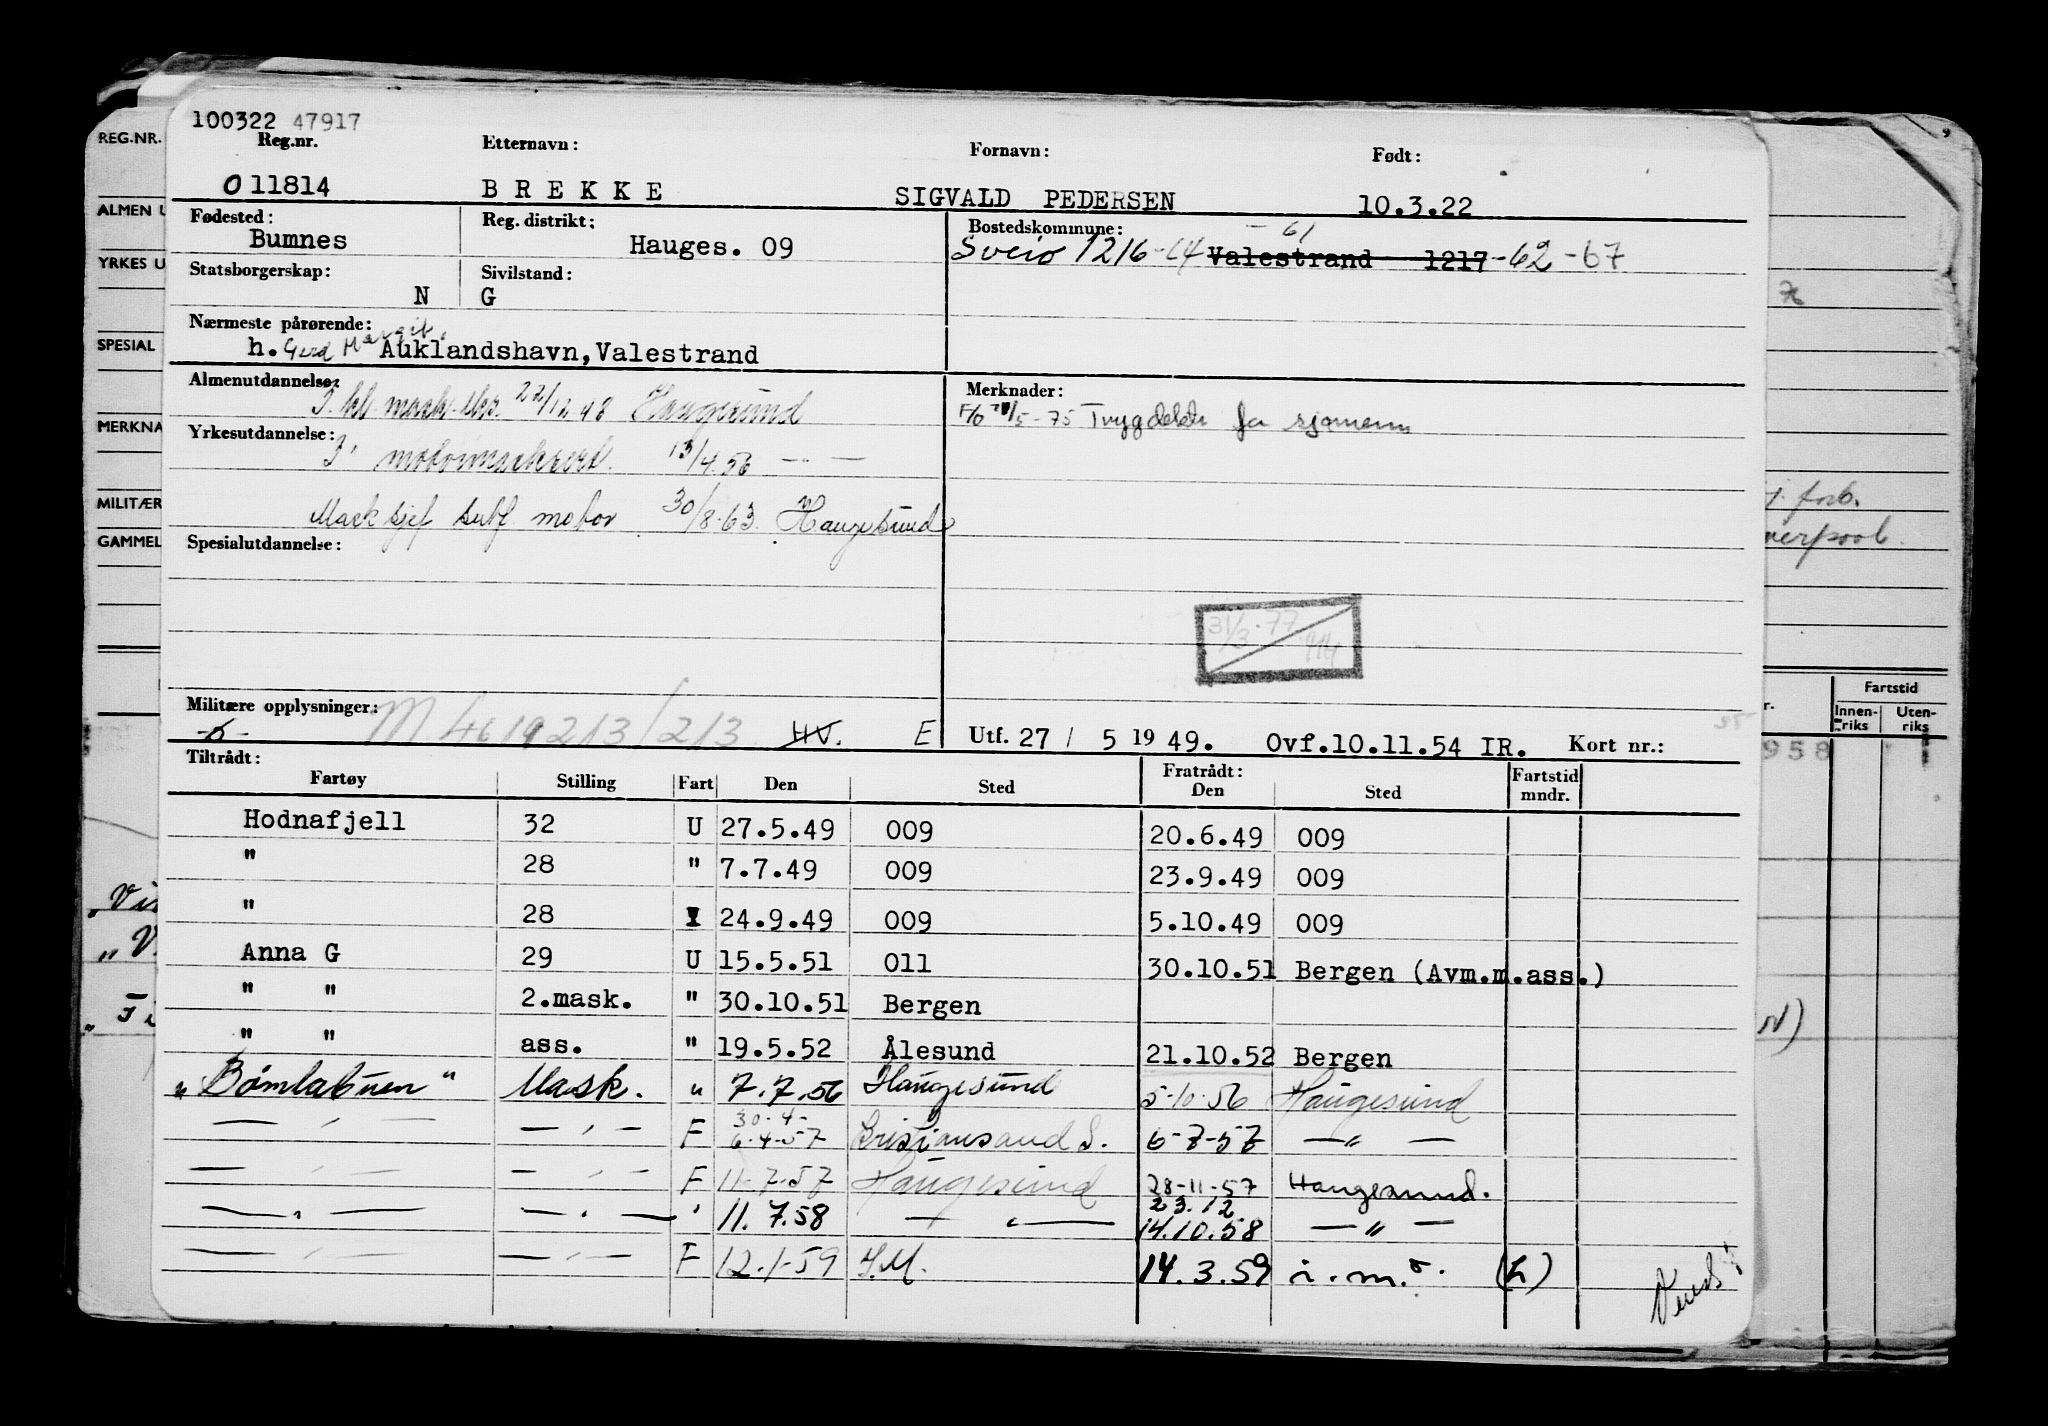 100322 47917
Reg.nr. Etternavn: Fornavn: Født:
011814 BREKKE SIGVALD PEDERSEN 10.3.22
Fødested: Reg. distrikt: Bostedskommune:
Bumnes Hauges. 09 Sveio 1216-64 Valestrand 1217 -61 -62 -67
Statsborgerskap: Sivilstand:
N G
Nærmeste pårørende:
h. Gerd Margit. Auklandshavn, Valestrand
Almenutdannelse: Merknader:
3. kl mask. eks. 22/12.48 Haugesund
F/O 5-75 Trygdekk for sjømenn
Yrkesutdannelse:
3' motormaskcert. 13/4.56 — " —
Mask sjef sert. motor 30/8.63. Haugesund
Spesialutdannelse:
31/3.77
Militære opplysninger:
M. 4619213/213 HV. E Utf. 27 / 5 1949. Ovf.10.11.54 IR. Kort nr.:
Tiltrådt: Fratrådt:
Fartøy Stilling Fart Den Sted Den Sted Fartstid mndr.
Hodnafjell 32 U 27.5.49 009 20.6.49 009
" 28 " 7.7.49 009 23.9.49 009
" 28 24.9.49 009 5.10.49 009
Anna G 29 U 15.5.51 011 30.10.51 Bergen (Avm.m.ass.)
" " 2.mask. " 30.10.51 Bergen
" " ass. " 19.5.52 Ålesund 21.10.52 Bergen
"Bømlabuen" Mask. " 7.7.56 Haugesund 5-10-56 Haugesund
— " — — " — F 30-4- 6-4-57 Kristiansand S. 6-7-57 — " —
— " — — " — F 11-7-57 Haugesund 28-11-57 Haugesund.
23.12
— " — — " — ' 11.7.58 — " — 14.10.58 — " —
— " — — " — F 12.1-59 I.M. 14.3.59 i.m.o. (L)
Vend!
REG.NR.
ALMEN U
YRKES U
SPESIAL
MERKNA
MILITÆR
GAMMEL
Fartstid
Innen-riks Uten-riks
958